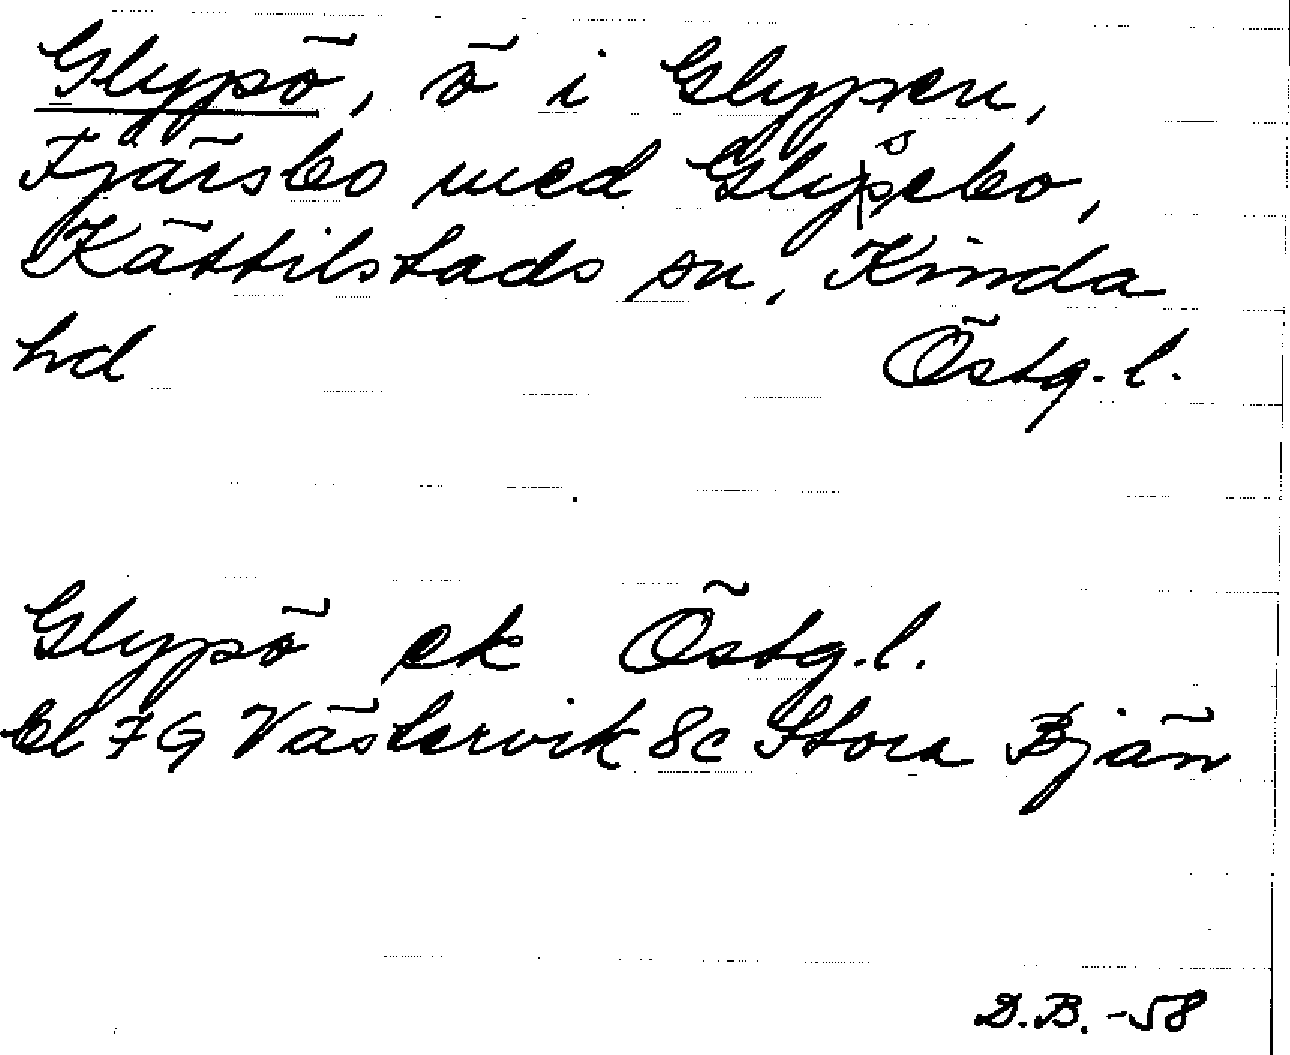 Glypö, ö i Glypen,
Fjärsbo med Glypebo,
Kättilstads sn, Kinda
hd Östg. l.
Glypö ek Östg. l.
bl 7 G Västervik 8c Stora Bjän
D.B. -58